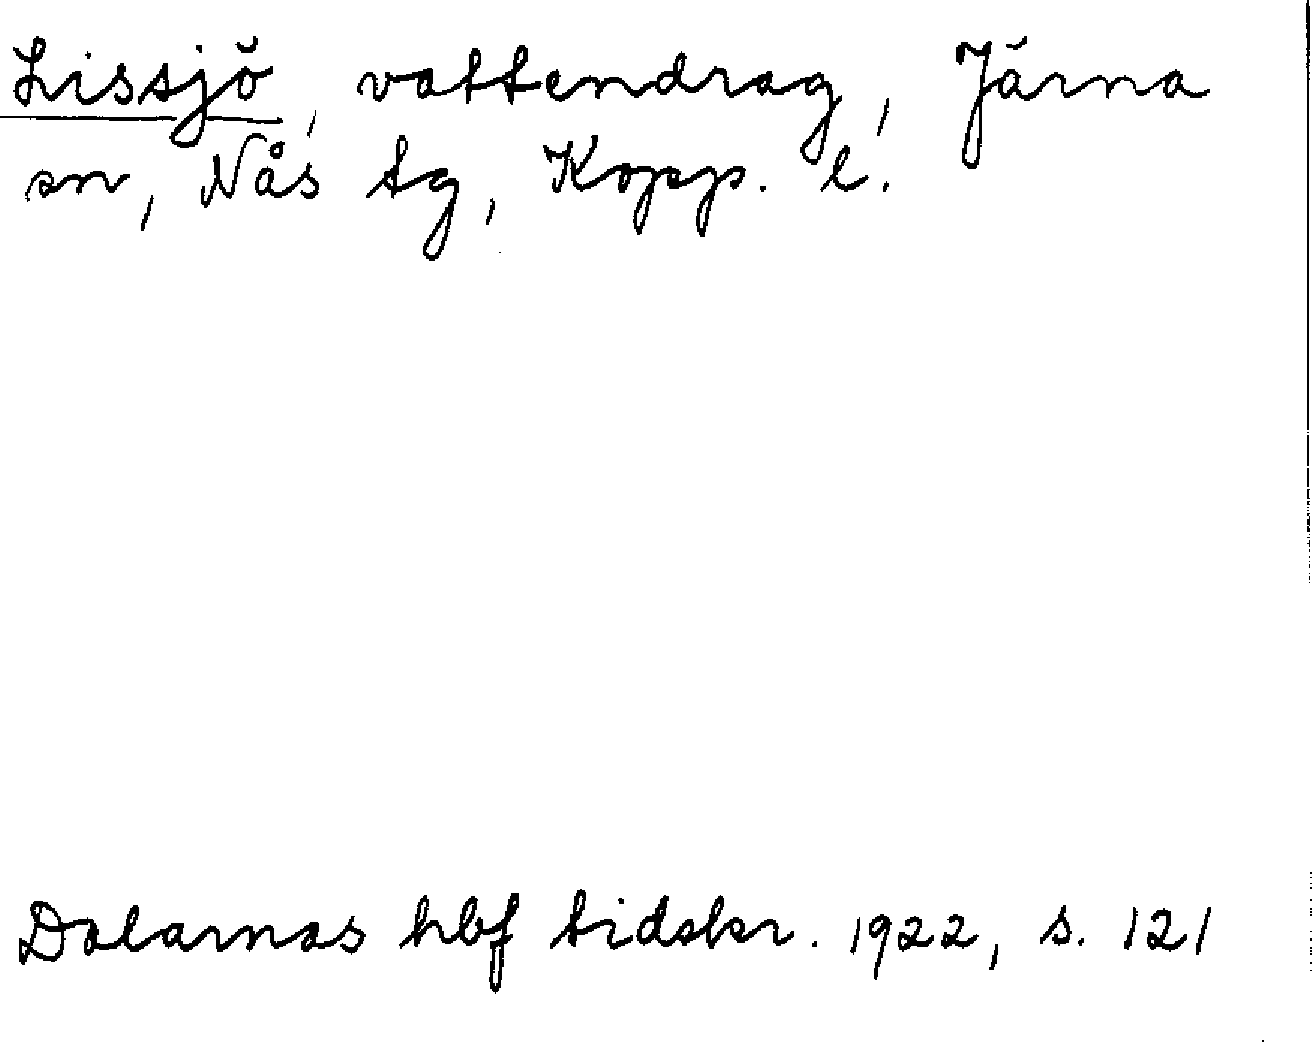 Lissjö, vattendrag, Järna
sn, Nås tg, Kopp. l.
Dalarnas hbf tidskr. 1922, s. 121